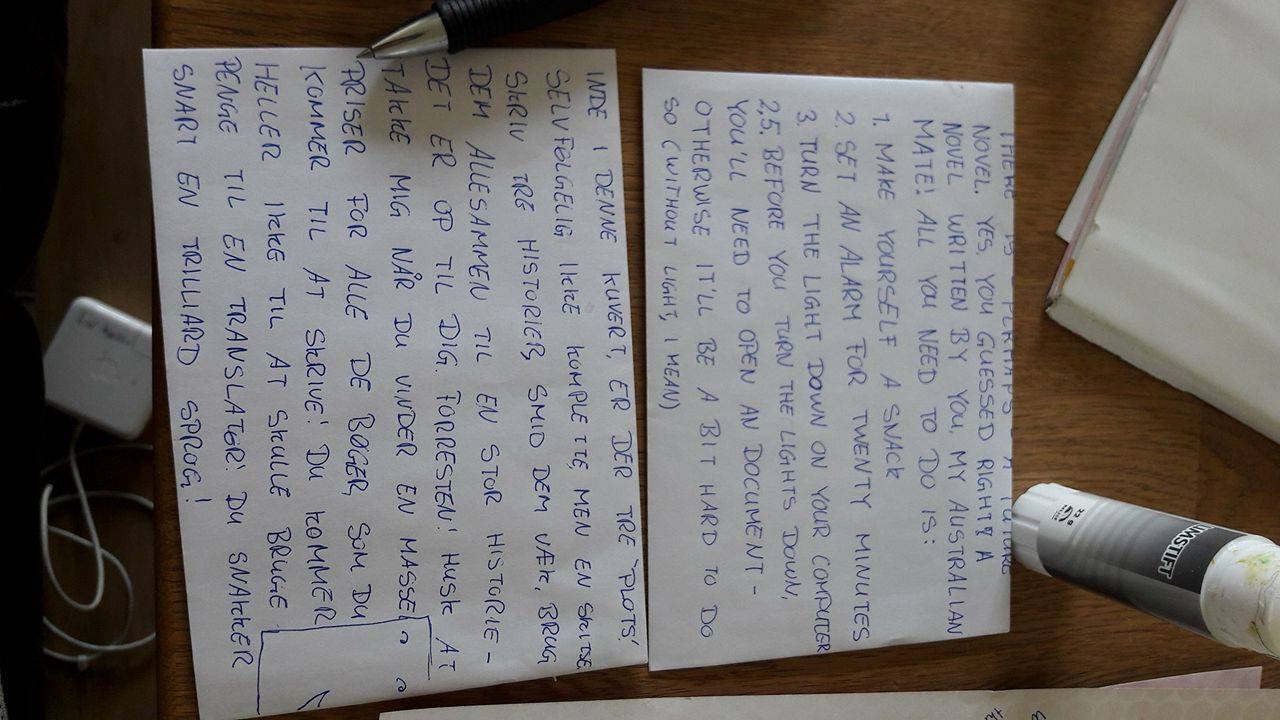 THERE IS PERHAPS A FUTURE
NOVEL. YES, YOU GUESSED RIGHT! A
NOVEL WRITTEN BY YOU, MY AUSTRALIAN
MATE! ALL YOU NEED TO DO IS:
1. MAKE YOURSELF A SNACK
2. SET AN ALARM FOR TWENTY MINUTES
3. TURN THE LIGHT DOWN ON YOUR COMPUTER
2,5. BEFORE YOU TURN THE LIGHTS DOWN,
YOU'LL NEED TO OPEN AN DOCUMENT -
OTHERWISE IT'LL BE A BIT HARD TO DO
SO (WITHOUT LIGHT, I MEAN)
INDE I DENNE KUVERT, ER DER TRE 'PLOTS'.
SELVFØLGELIG IKKE KOMPLETTE, MEN EN SKITSE
SKRIV TRE HISTORIER, SMID DEM VÆK, BRUG
DEM ALLESAMMEN TIL EN STOR HISTORIE -
DET ER OP TIL DIG, FORRESTEN! HUSK AT
TAKKE MIG NÅR DU VINDER EN MASSE
PRISER FOR ALLE DE BØGER, SOM DU
KOMMER TIL AT SKRIVE! DU KOMMER
HELLER IKKE TIL AT SKULLE BRUGE
PENGE TIL EN TRANSLATØR! DU SNAKKER
SNART EN TRILLIARD SPROG!
22 g
UMSTIFT